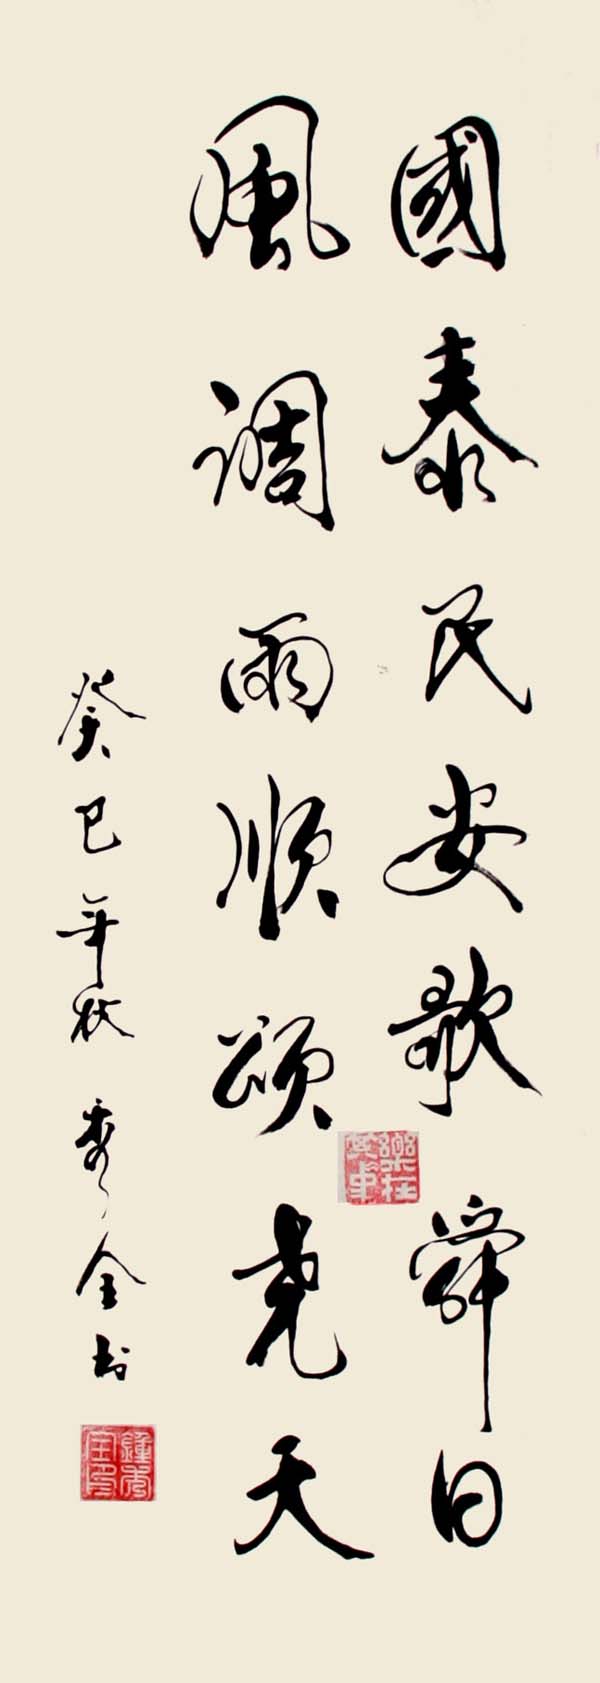 國泰民安歌舜日
風調雨順頌堯天
癸巳年秋 秀全书
樂在其中
鍾秀全印